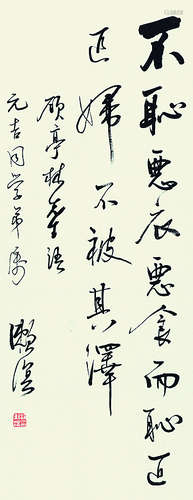 不恥惡衣惡食而恥匹
匹婦不被其澤
顧亭林先生語
元吉同學弟屬
漱溟